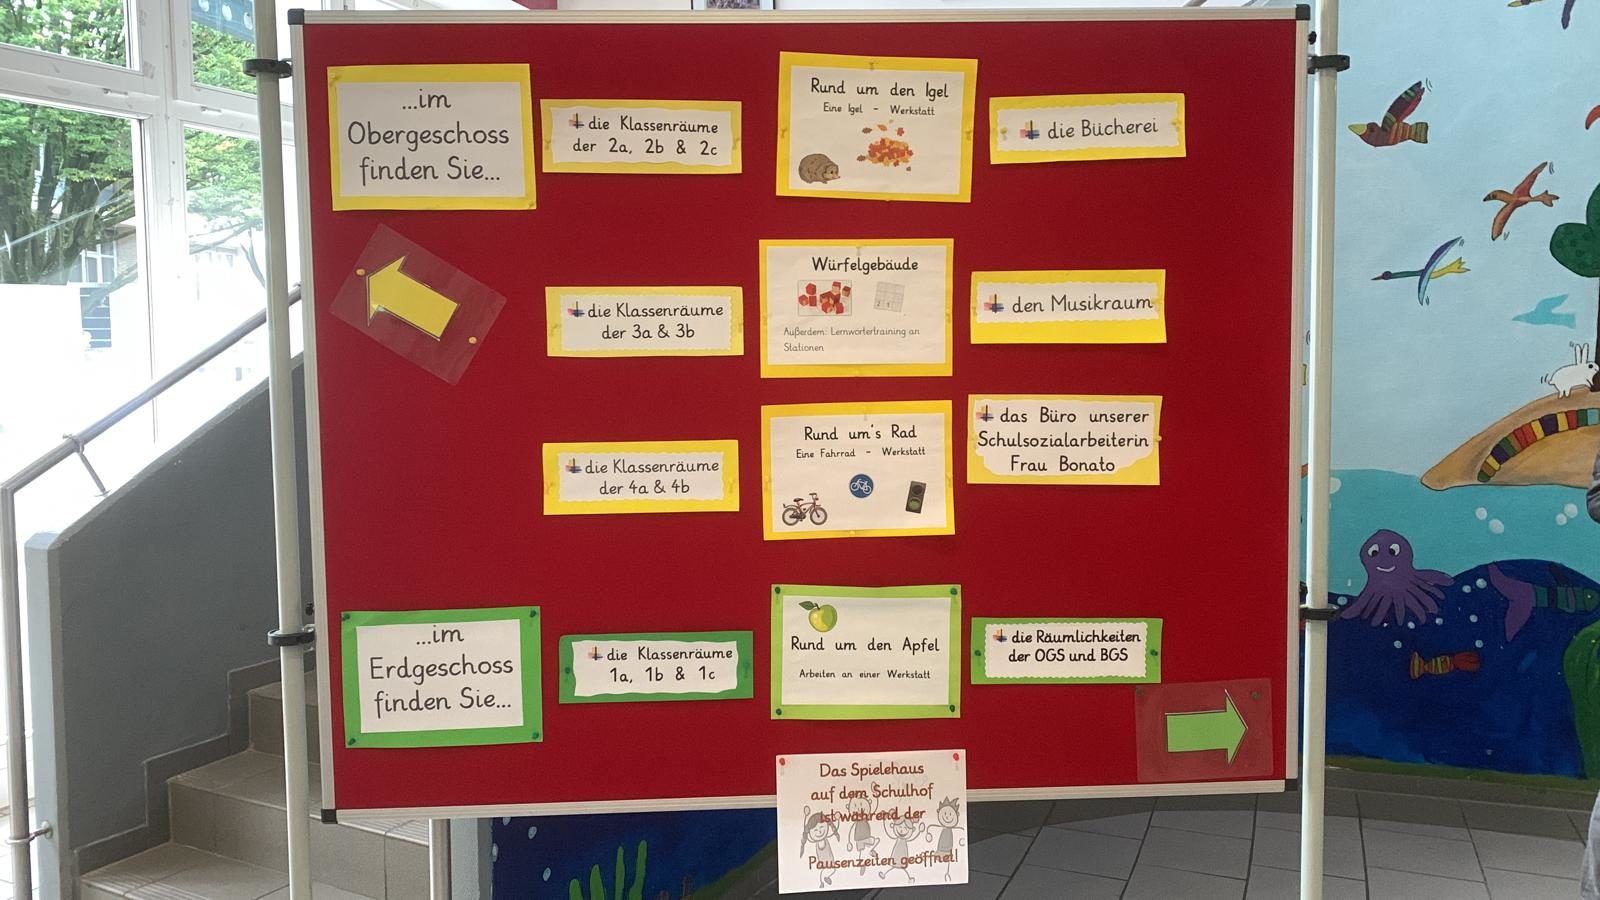 ...im
Obergeschoss
finden Sie...
die Klassenräume
der 2a, 2b & 2c
Rund um den Igel
Eine Igel - Werkstatt
die Bücherei
die Klassenräume
der 3a & 3b
Würfelgebäude
2 1
Außerdem: Lernwörtertraining an
Stationen
den Musikraum
die Klassenräume
der 4a & 4b
Rund um's Rad
Eine Fahrrad - Werkstatt
das Büro unserer
Schulsozialarbeiterin
Frau Bonato
...im
Erdgeschoss
finden Sie...
die Klassenräume
1a, 1b & 1c
Rund um den Apfel
Arbeiten an einer Werkstatt
die Räumlichkeiten
der OGS und BGS
Das Spielehaus
auf dem Schulhof
ist während der
Pausenzeiten geöffnet!